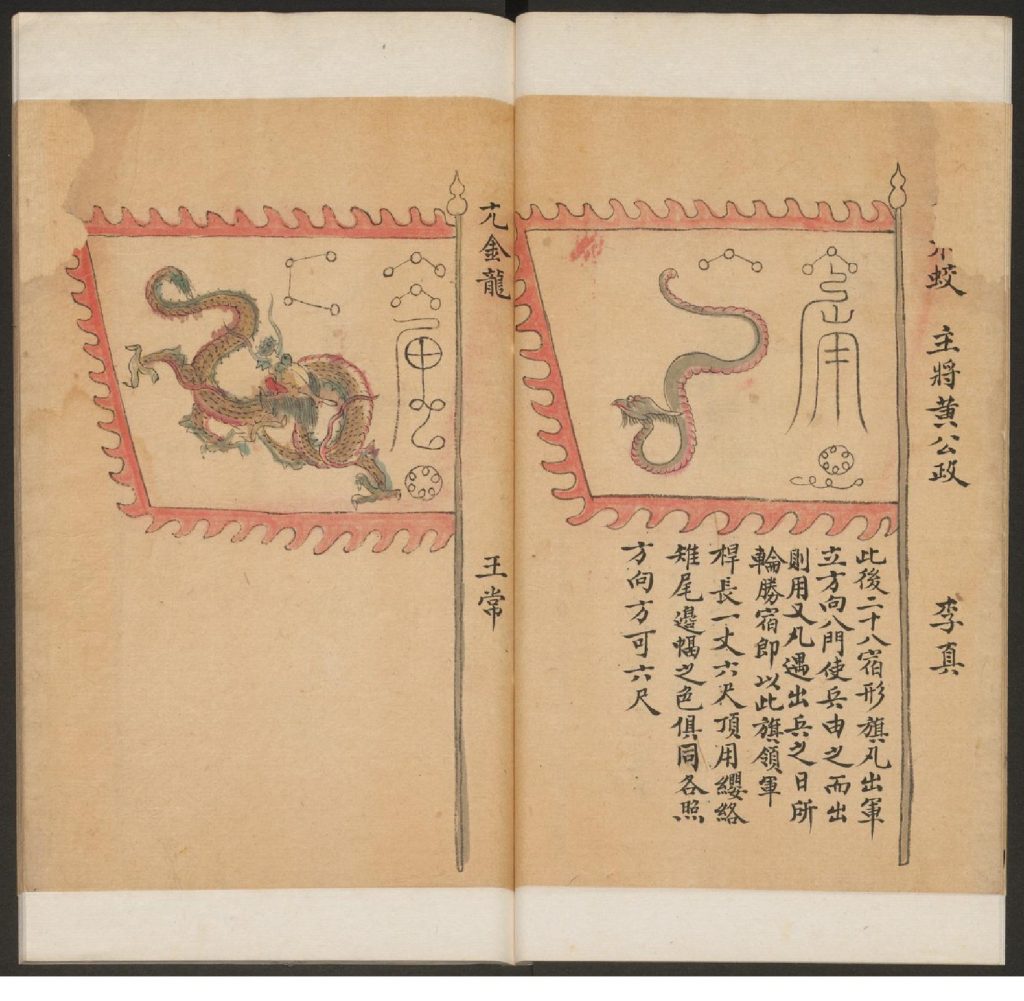 蛟 主將黄公政 李真
此後二十八宿形旗凡出軍
立方向八門使兵由之而出
則用又凡遇出兵之日所
輪勝宿即以此旗領軍
桿長一丈六尺頂用纓絡
雉尾邊幅之色俱同各照
方向方可六尺
亢金龍 王常